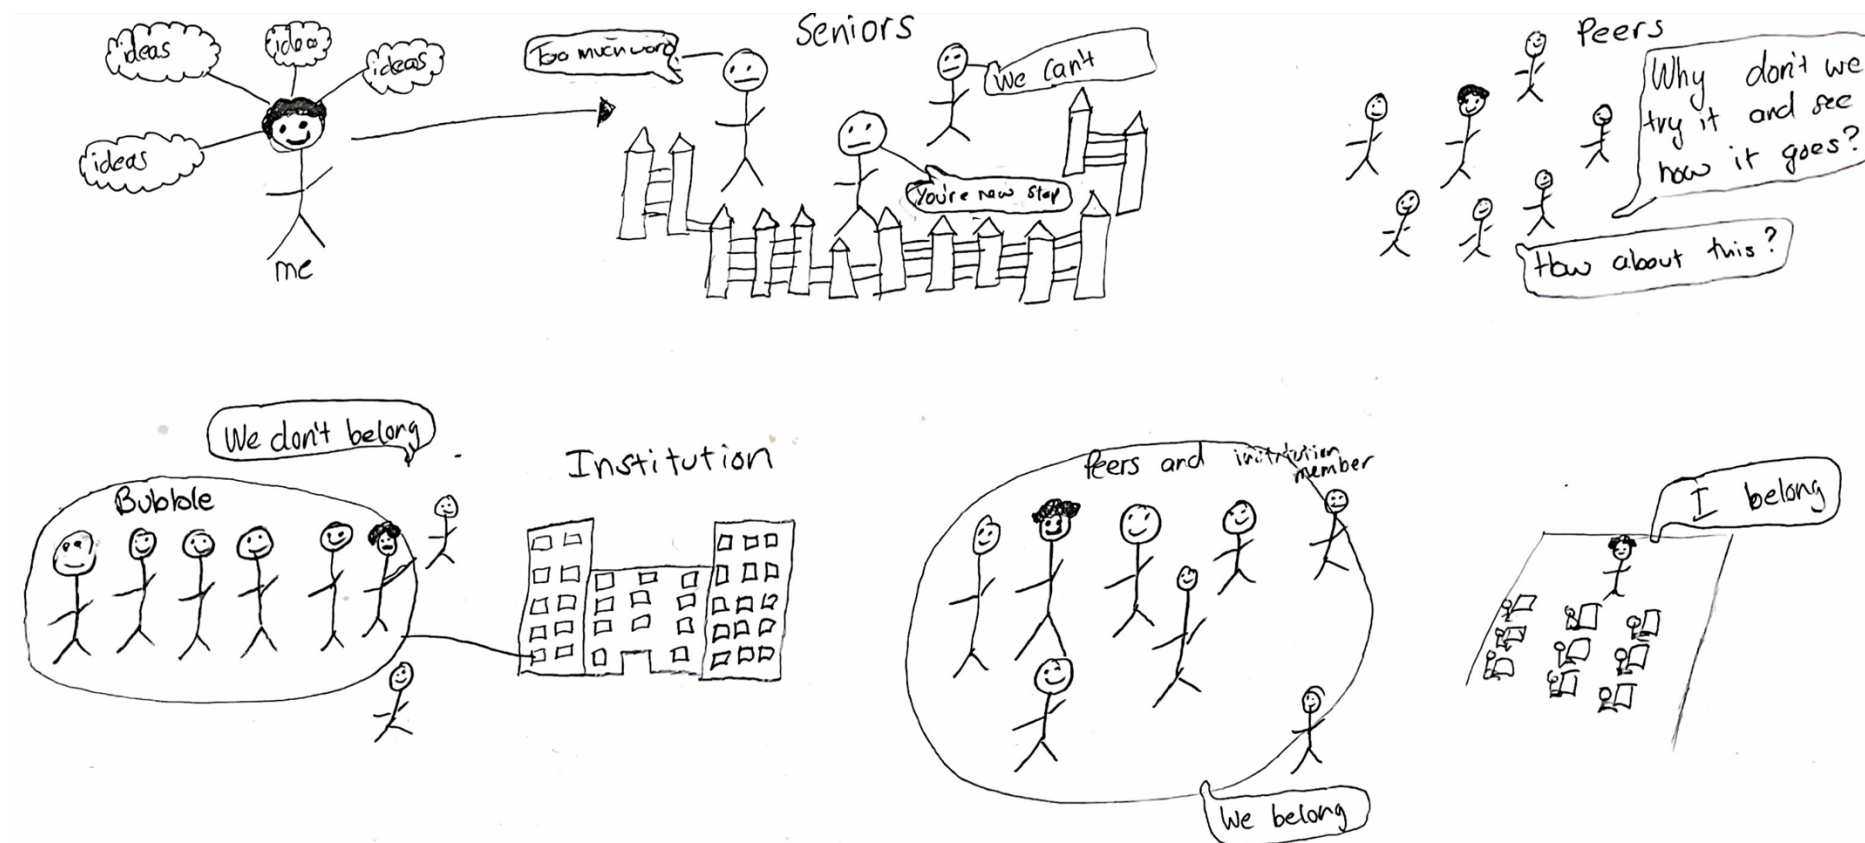 ideas
idea
ideas
ideas
me
Seniors
Too much word
We can't
You're new stop
Peers
Why don't we
try it and see
how it goes?
How about this?
We don't belong
Bubble
Institution
Peers and
member
We belong
I belong